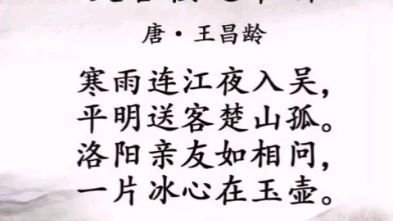 唐·王昌龄
寒雨连江夜入吴，
平明送客楚山孤。
洛阳亲友如相问，
一片冰心在玉壶。